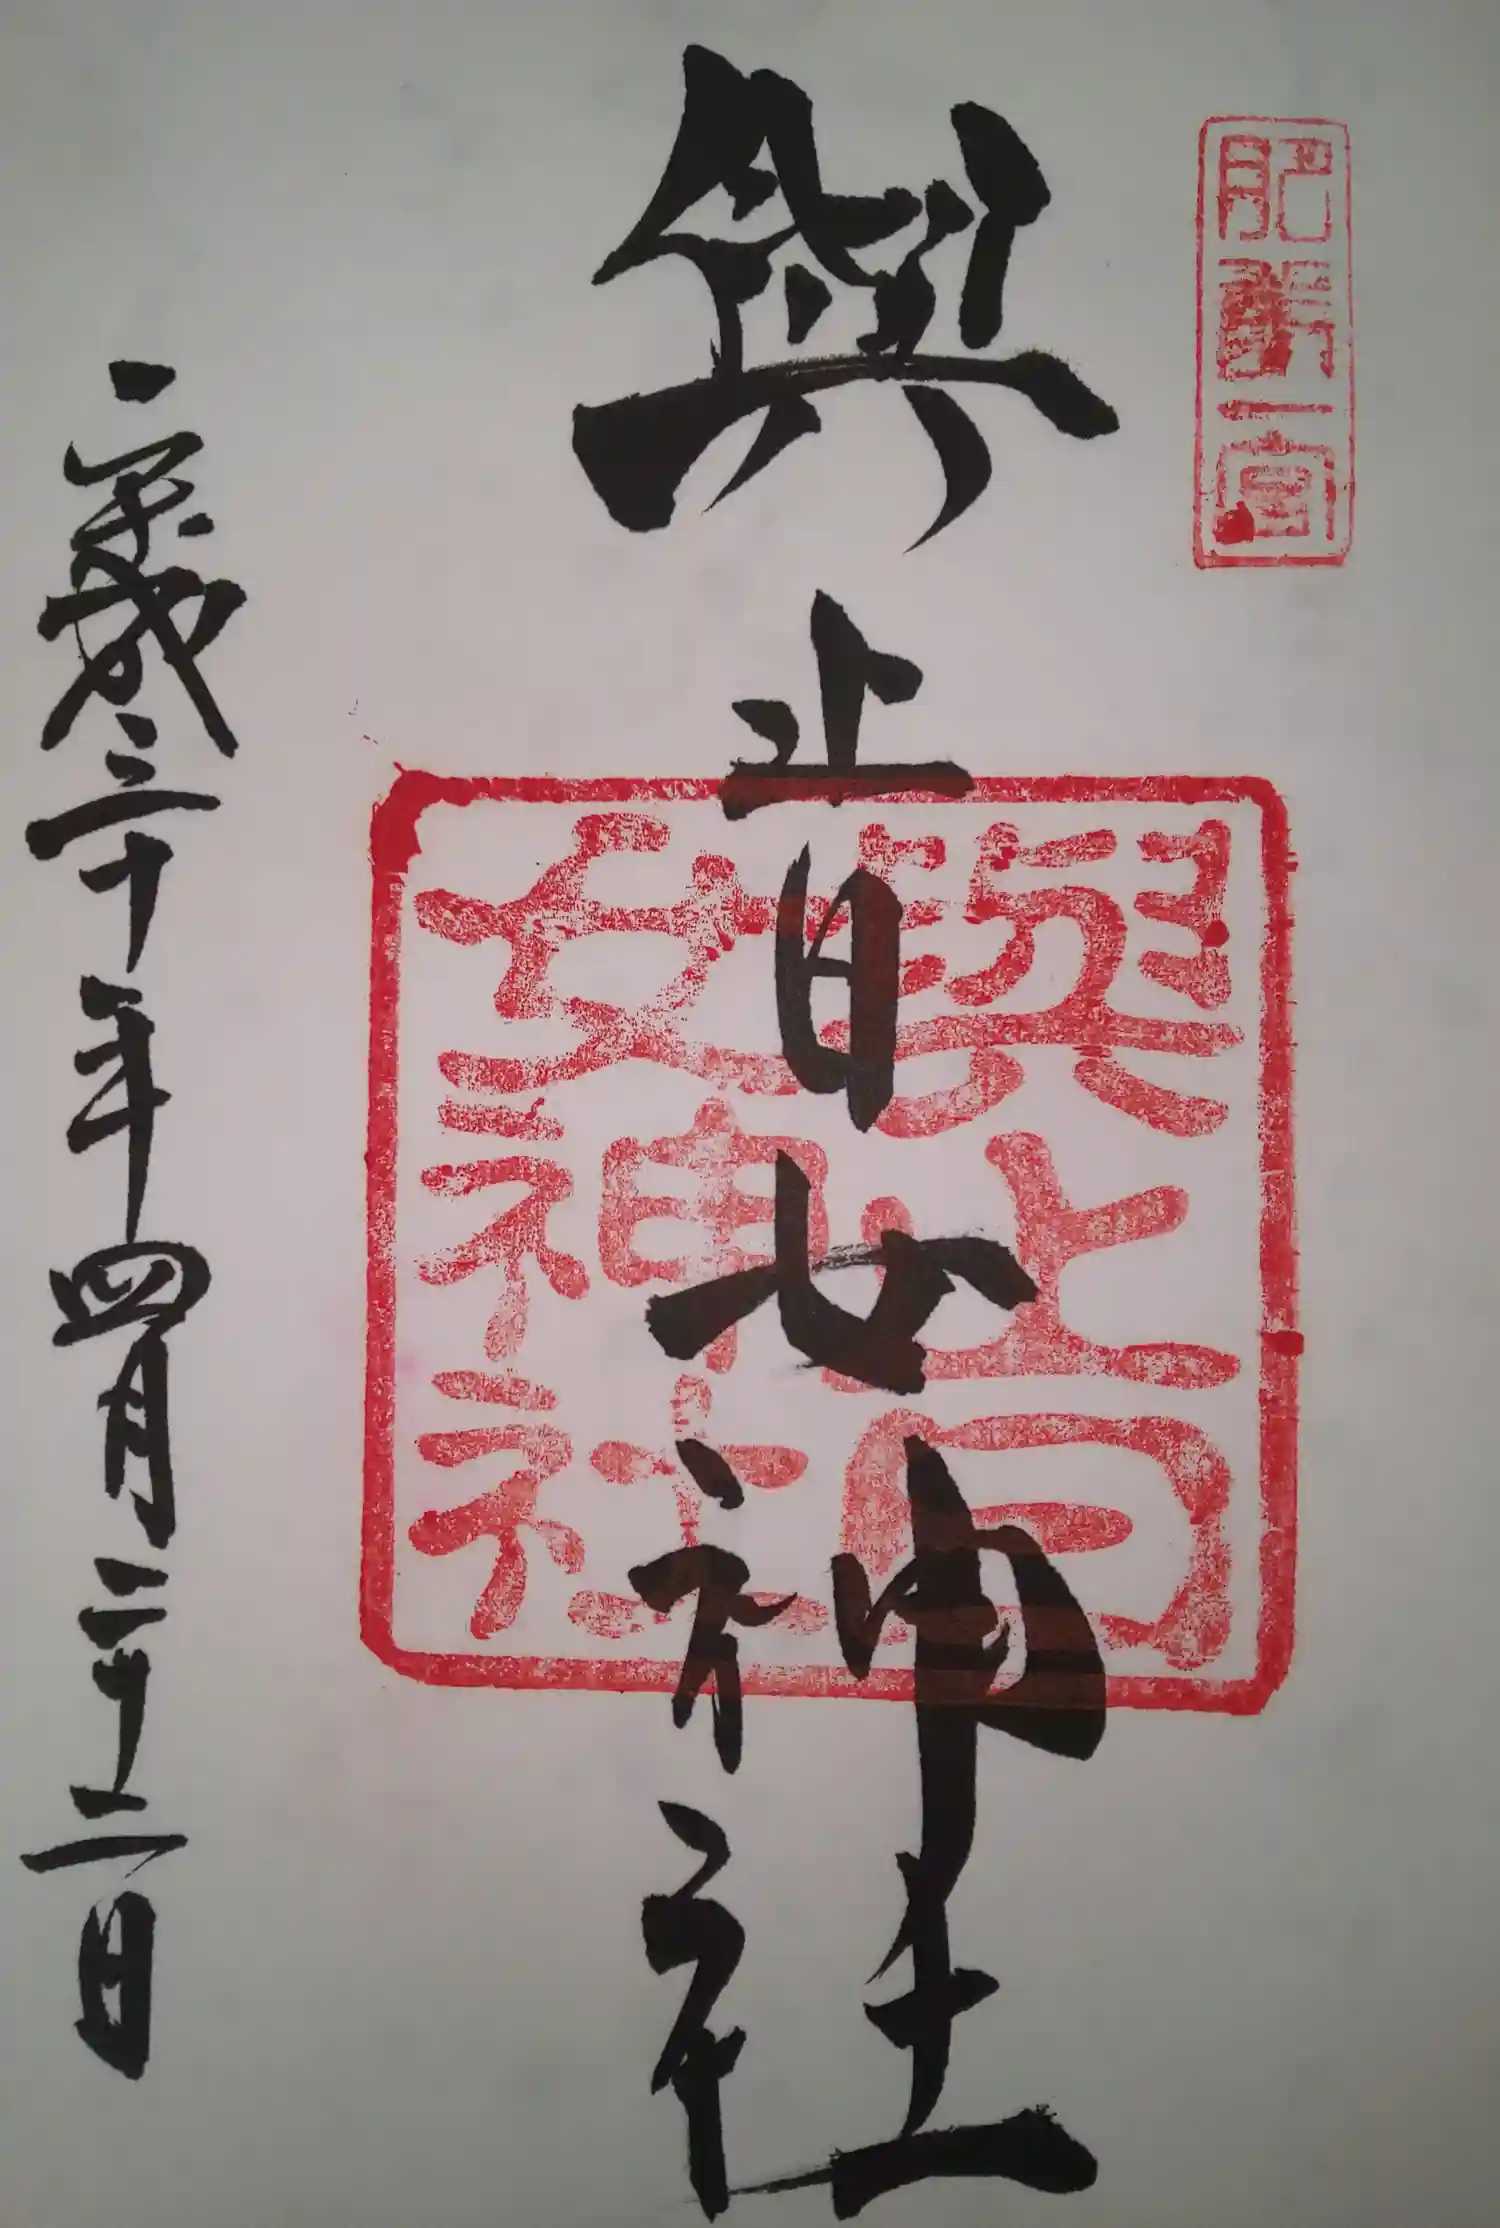 肥前一宮
與止日女神社
與止日女神社
平成三十年四月二十二日